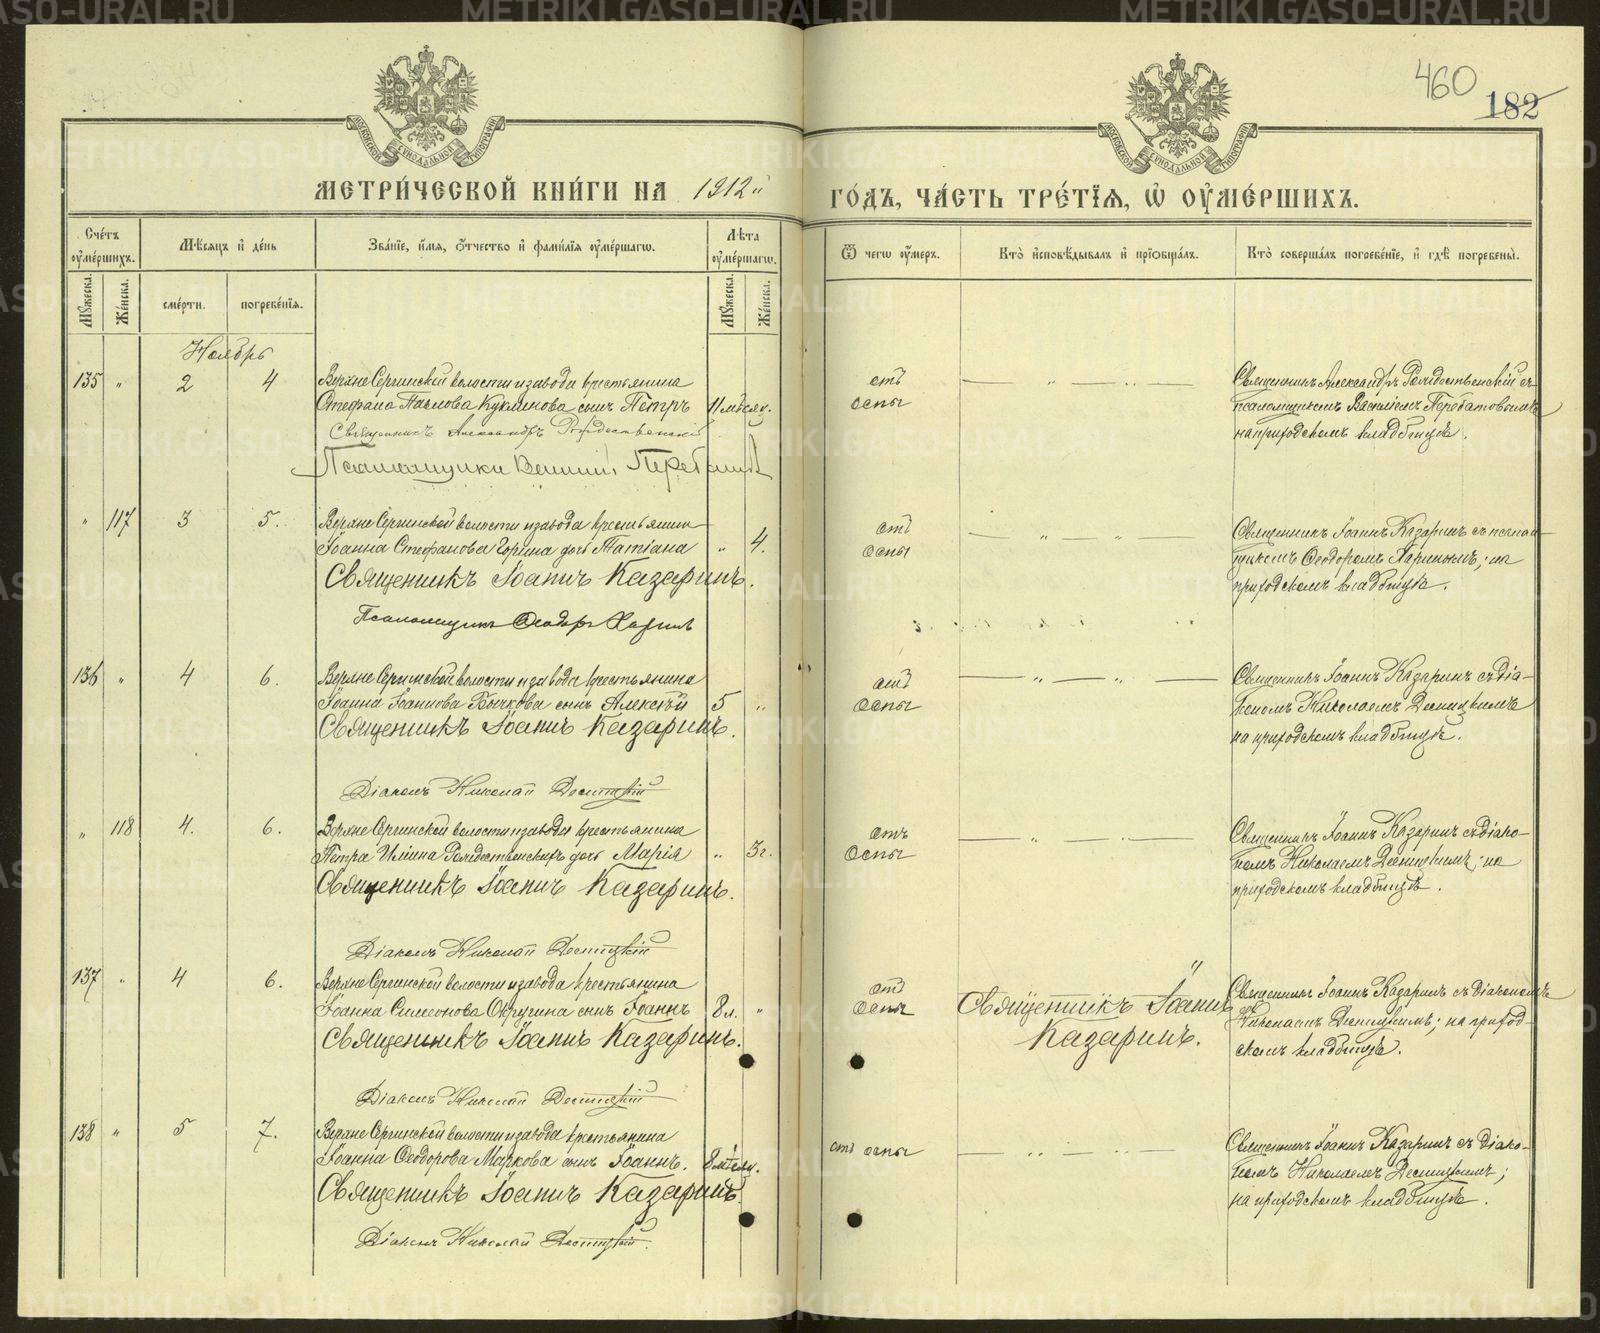 460
182
МОСКОВСКОЙ СѴНОДАЛЬНОЙ ТИПОГРАФІИ
МОСКОВСКОЙ СѴНОДАЛЬНОЙ ТИПОГРАФІИ
МЕТРИ́ЧЕСКОЙ КНИ́ГИ НА 1912й ГО́ДЪ, ЧА́СТЬ ТРЕ́ТІѦ, Ѡ ОУ҆МЕ́РШИХЪ.
Сче́тъ оу҆ме́ршихъ.
Мѣ́сяцъ и҆ де́нь
Зва́ніе, и҆́мя, ѻ҆́тчество и҆ фами́лія оу҆ме́ршагѡ.
Лѣ́та оу҆ме́ршагѡ.
Ѿ чегѡ̀ оу҆́меръ.
Кто̀ и҆сповѣ́дывалъ и҆ прїѡбща́лъ.
Кто̀ соверша́лъ погребе́ніе, и҆ гдѣ̀ погребены̀.
Мꙋ́жеска. Же́нска. сме́рти. погребе́нія. Мꙋ́жеска. Же́нска.
Ноябрь
135 „ 2 4 Верхне Сергинской волости и завода крестьянина
Стефана Павлова Куклинова сынъ Петръ 11 мѣсяц.
Священникъ Александръ Рождественскій
Псаломщикъ Василій
отъ
оспы
Священникъ Александръ Рождественскій съ
псаломщикомъ Василіемъ
на приходскомъ кладбищѣ.
„ 117 3 5. Верхне Сергинской волости и завода крестьянина
Іоанна Стефанова Горина дочь Татіана „ 4.
Священникъ Іоаннъ Казаринъ.
Псаломщикъ Ѳеодоръ Харинъ
отъ
оспы
Священникъ Іоаннъ Казаринъ съ псалом-
щикомъ Ѳеодоромъ Харинымъ; на
приходскомъ кладбищѣ.
136 „ 4 6. Верхне Сергинской волости и завода крестьянина
Іоанна Іоаннова Бычкова сынъ Алексѣй 5 „
Священникъ Іоаннъ Казаринъ.
Діаконъ Николай Десницкій
отъ
Оспы
Священникъ Іоаннъ Казаринъ съ діа-
кономъ Николаемъ Десницкимъ
на приходскомъ кладбищѣ.
„ 118 4. 6. Верхне Сергинской волости и завода крестьянина
Петра Иліина Рождественскихъ дочь Марія „ 3 г.
Священникъ Іоаннъ Казаринъ.
Діаконъ Николай Десницкій
Отъ
Оспы
Священникъ Іоаннъ Казаринъ съ діако-
номъ Николаемъ Десницкимъ; на
приходскомъ кладбищѣ.
137 „ 4 6. Верхне Сергинской волости и завода крестьянина
Іоанна Симеонова Округина сынъ Іоаннъ 8 л. „
Священникъ Іоаннъ Казаринъ.
Діаконъ Николай Десницкій
отъ
Оспы
Священникъ Іоаннъ
Казаринъ.
Священникъ Іоаннъ Казаринъ съ діакономъ
Николаемъ Десницкимъ; на приход-
скомъ кладбищѣ.
138 „ 5 7. Верхне Сергинской волости и завода крестьянина
Іоанна Ѳеодорова Маркова сынъ Іоаннъ. 8 мѣсяц.
Священникъ Іоаннъ Казаринъ.
Діаконъ Николай Десницкій.
отъ оспы
Священникъ Іоаннъ Казаринъ съ діако-
номъ Николаемъ Десницкимъ;
на приходскомъ кладбищѣ.
METRIKI.GASO-URAL.RU